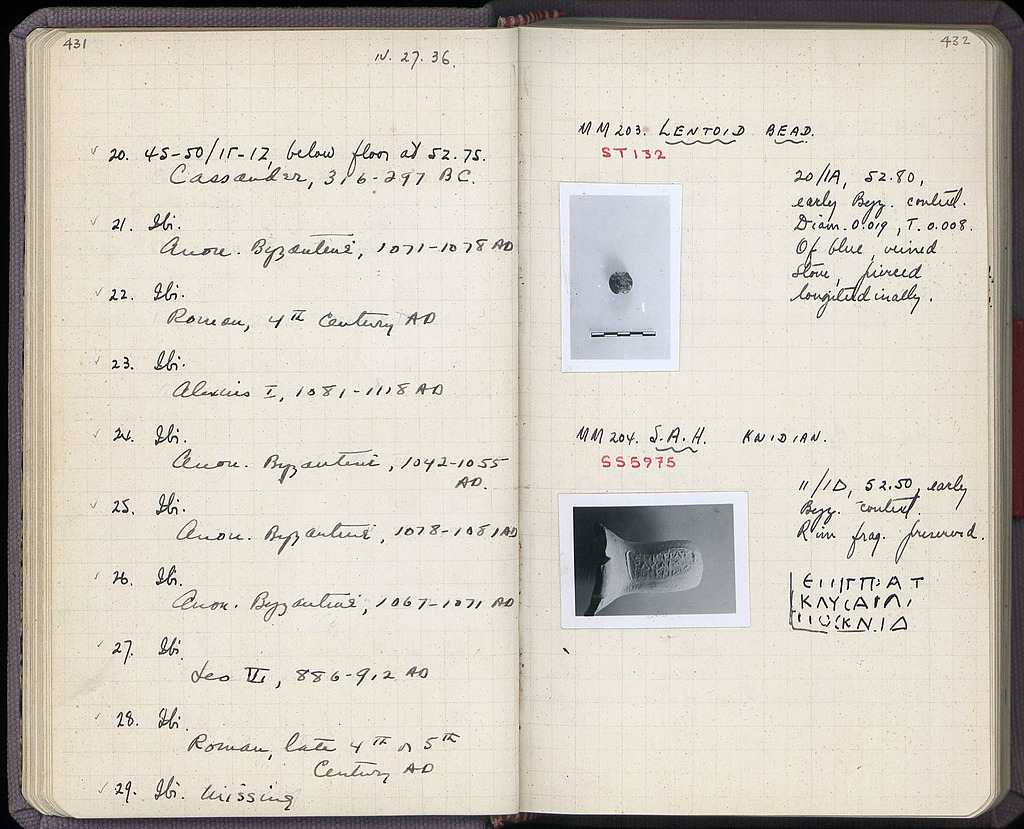 431
IV. 27. 36.
20. 45-50/15-17, below floor at 52.75.
Cassander, 316-297 BC.
21. Ibi.
Anon. Byzantine, 1071-1078 AD
22. Ibi.
Roman, 4th Century AD
23. Ibi.
Alexius I, 1081-1118 AD
24. Ibi.
Anon. Byzantine, 1042-1055
AD.
25. Ibi.
Anon. Byzantine, 1078-1081 AD
26. Ibi.
Anon. Byzantine, 1067-1071 AD
27. Ibi.
Leo VI, 886-912 AD
28. Ibi.
Roman, late 4th or 5th
Century AD
29. Ibi. Missing
432
MM 203. LENTOID BEAD.
ST132
20/ΙΑ, 52.80,
early Byz. context.
Diam. 0.019, T. 0.008.
Of blue, veined
stone, pierced
longitudinally.
MM 204. S.A.H. KNIDIAN.
SS5975
11/ΙΔ, 52.50, early
Byz. context.
Rim frag. preserved.